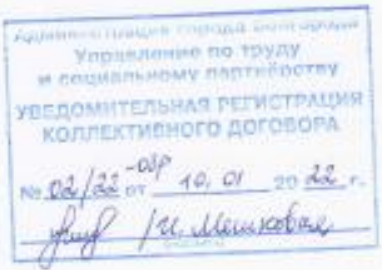 Администрация города Белгорода
Управление по труду
и социальному партнёрству
УВЕДОМИТЕЛЬНАЯ РЕГИСТРАЦИЯ
КОЛЛЕКТИВНОГО ДОГОВОРА
№ 02/22-ОЗР от 10.01 2022 г.
/И. Мешковая